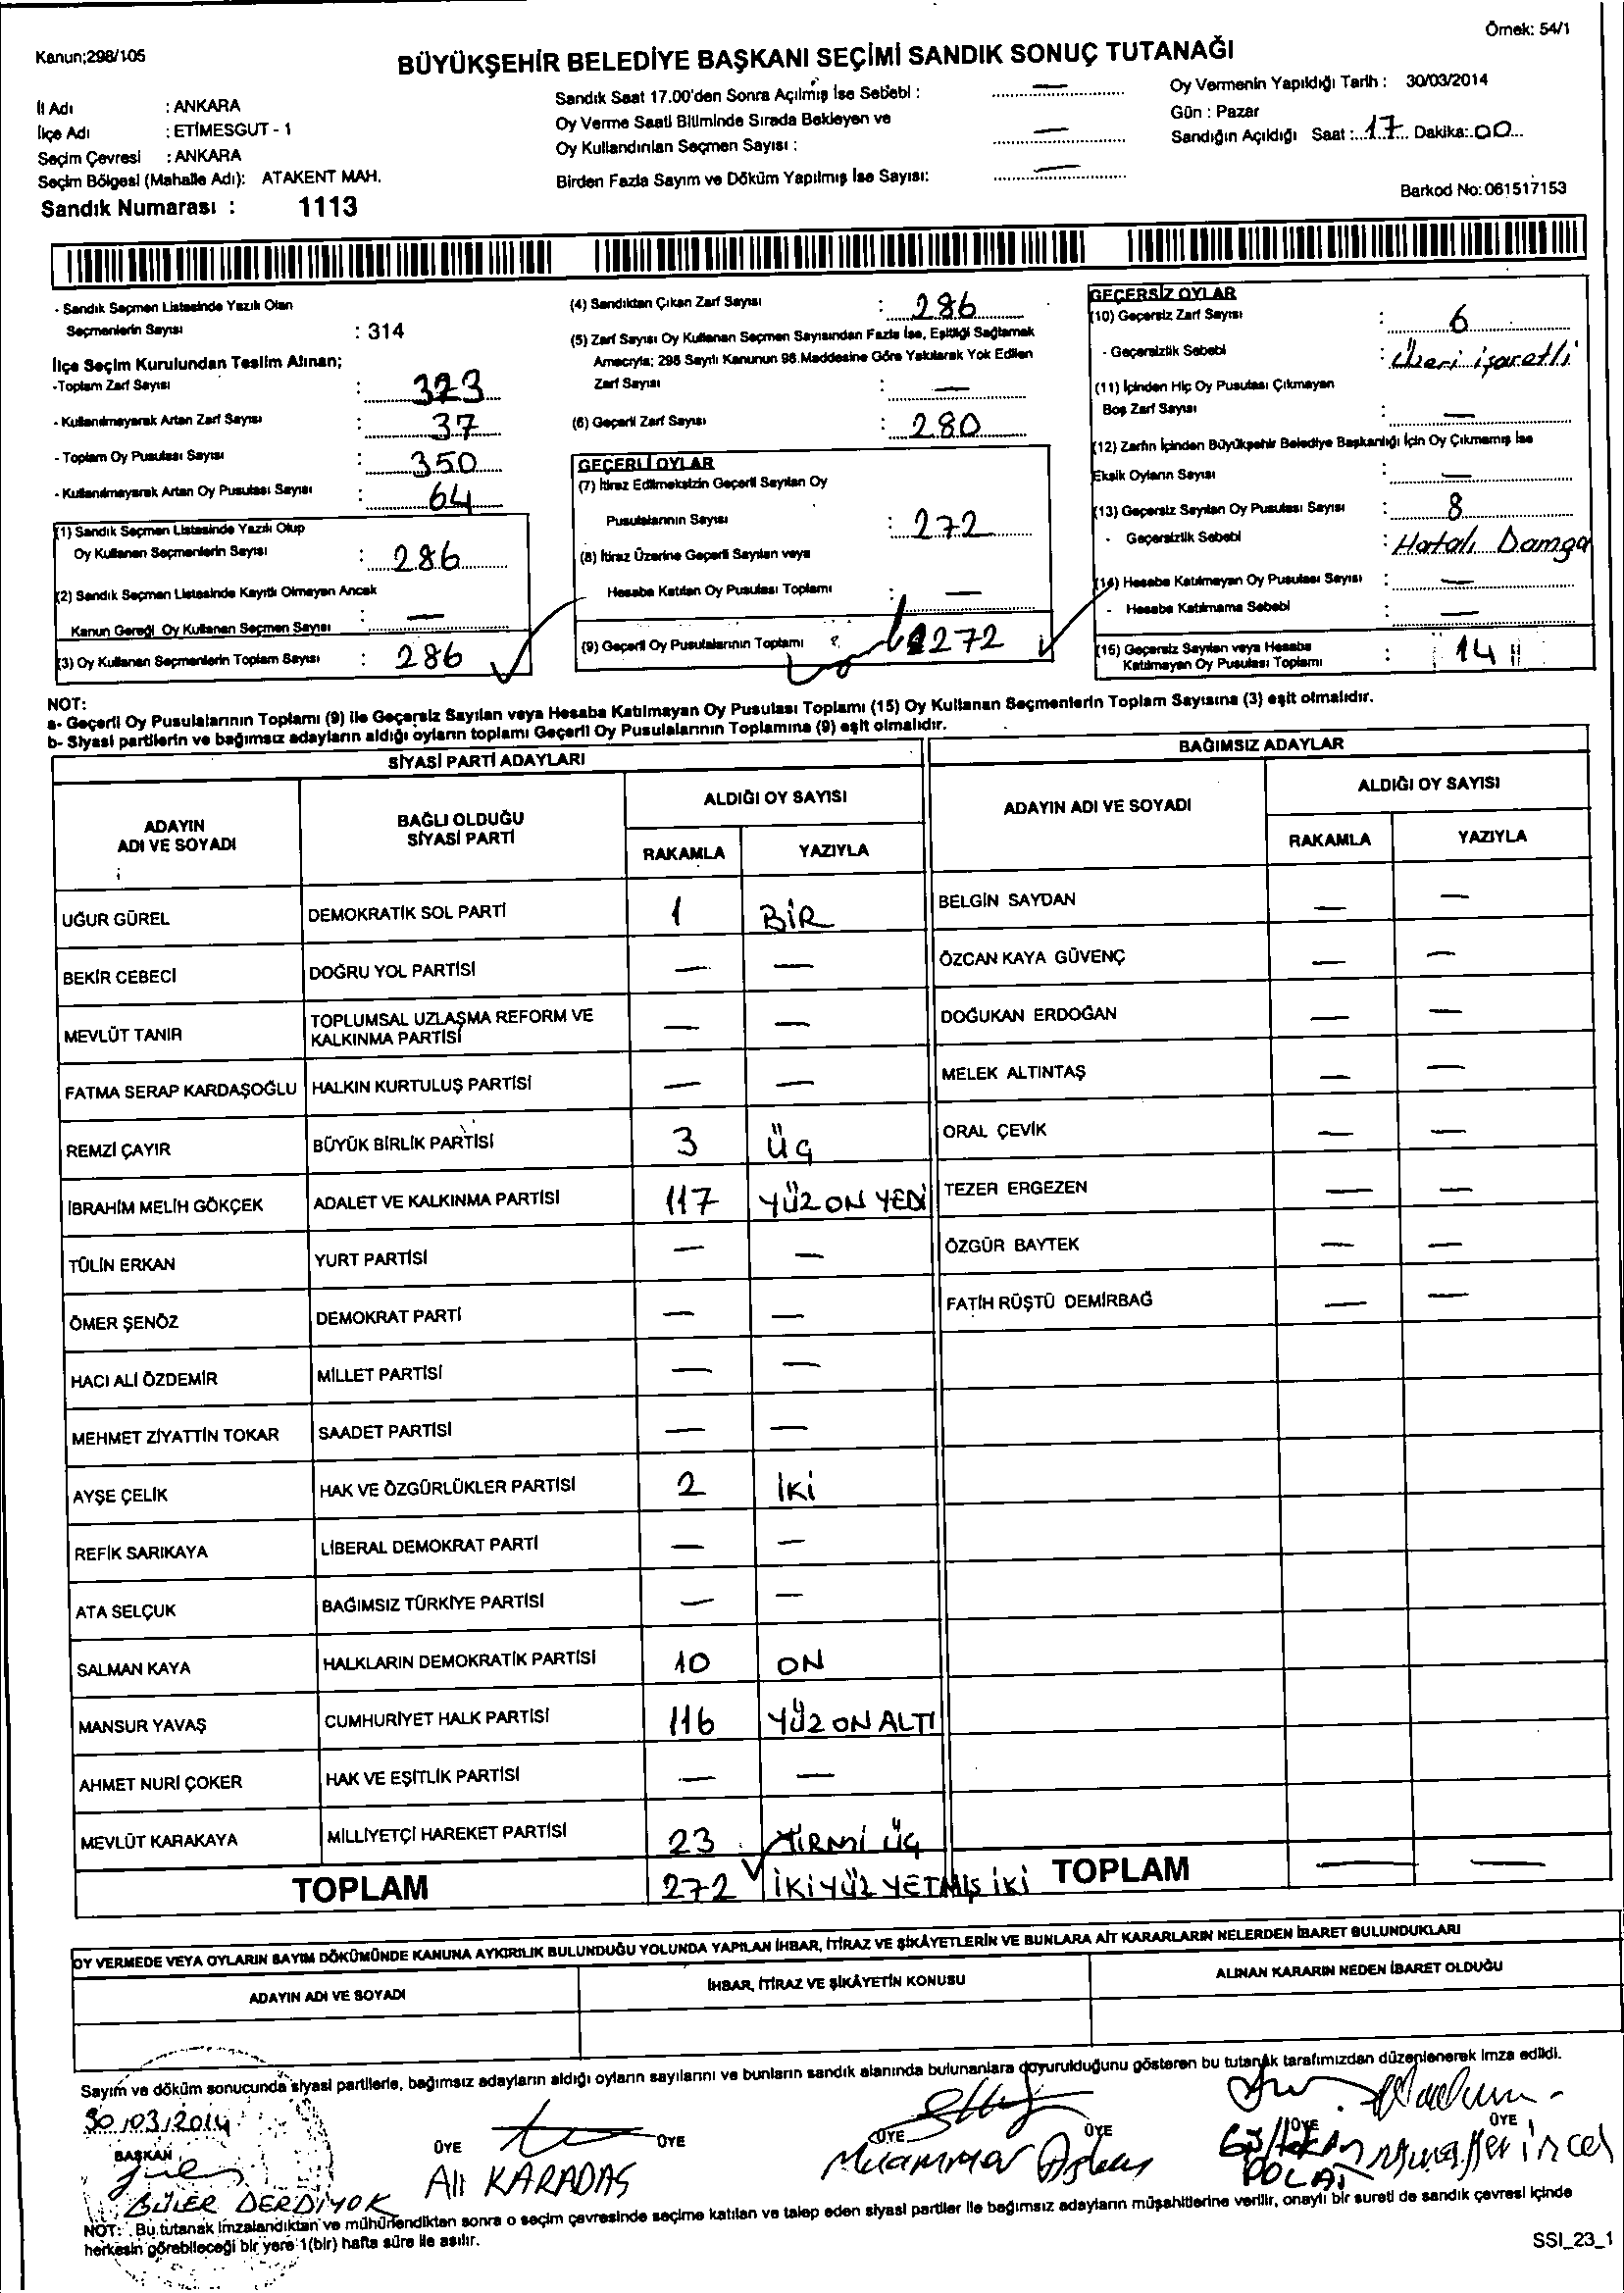 Örnek: 54/1
Kanun;298/105
BÜYÜKŞEHİR BELEDİYE BAŞKANI SEÇİMİ SANDIK SONUÇ TUTANAĞI
İl Adı : ANKARA
İlçe Adı : ETİMESGUT - 1
Seçim Çevresi : ANKARA
Seçim Bölgesi (Mahalle Adı): ATAKENT MAH.
Sandık Numarası : 1113
Sandık Saat 17.00'den Sonra Açılmış İse Sebebi : —
Oy Verme Saati Bitiminde Sırada Bekleyen ve
Oy Kullandırılan Seçmen Sayısı : —
Birden Fazla Sayım ve Döküm Yapılmış İse Sayısı: —
Oy Vermenin Yapıldığı Tarih : 30/03/2014
Gün : Pazar
Sandığın Açıldığı Saat : 17 Dakika: 00
Barkod No: 061517153
- Sandık Seçmen Listesinde Yazılı Olan
Seçmenlerin Sayısı : 314
İlçe Seçim Kurulundan Teslim Alınan;
-Toplam Zarf Sayısı : 323
- Kullanılmayarak Artan Zarf Sayısı : 37
- Toplam Oy Pusulası Sayısı : 350
- Kullanılmayarak Artan Oy Pusulası Sayısı : 64
(1) Sandık Seçmen Listesinde Yazılı Olup
Oy Kullanan Seçmenlerin Sayısı : 286
(2) Sandık Seçmen Listesinde Kayıtlı Olmayan Ancak
Kanun Gereği Oy Kullanan Seçmen Sayısı : —
(3) Oy Kullanan Seçmenlerin Toplam Sayısı : 286
(4) Sandıktan Çıkan Zarf Sayısı : 286
(5) Zarf Sayısı Oy Kullanan Seçmen Sayısından Fazla İse, Eşitliği Sağlamak
Amacıyla; 298 Sayılı Kanunun 98.Maddesine Göre Yakılarak Yok Edilen
Zarf Sayısı : —
(6) Geçerli Zarf Sayısı : 280
GEÇERLİ OYLAR
(7) İtiraz Edilmeksizin Geçerli Sayılan Oy
Pusulalarının Sayısı : 272
(8) İtiraz Üzerine Geçerli Sayılan veya
Hesaba Katılan Oy Pusulası Toplamı : —
(9) Geçerli Oy Pusulalarının Toplamı : 272
GEÇERSİZ OYLAR
(10) Geçersiz Zarf Sayısı : 6
- Geçersizlik Sebebi : Üzeri işaretli
(11) İçinden Hiç Oy Pusulası Çıkmayan
Boş Zarf Sayısı : —
(12) Zarfın İçinden Büyükşehir Belediye Başkanlığı İçin Oy Çıkmamış İse
Eksik Oyların Sayısı : —
(13) Geçersiz Sayılan Oy Pusulası Sayısı : 8
- Geçersizlik Sebebi : Hatalı Damga
(14) Hesaba Katılmayan Oy Pusulası Sayısı : —
- Hesaba Katılmama Sebebi : —
(15) Geçersiz Sayılan veya Hesaba
Katılmayan Oy Pusulası Toplamı : 14
NOT:
a- Geçerli Oy Pusulalarının Toplamı (9) ile Geçersiz Sayılan veya Hesaba Katılmayan Oy Pusulası Toplamı (15) Oy Kullanan Seçmenlerin Toplam Sayısına (3) eşit olmalıdır.
b- Siyasi partilerin ve bağımsız adayların aldığı oyların toplamı Geçerli Oy Pusulalarının Toplamına (9) eşit olmalıdır.
SİYASİ PARTİ ADAYLARI
ADAYIN
ADI VE SOYADI
BAĞLI OLDUĞU
SİYASİ PARTİ
ALDIĞI OY SAYISI
RAKAMLA YAZIYLA
UĞUR GÜREL DEMOKRATİK SOL PARTİ 1 BİR
BEKİR CEBECİ DOĞRU YOL PARTİSİ — —
MEVLÜT TANIR TOPLUMSAL UZLAŞMA REFORM VE
KALKINMA PARTİSİ — —
FATMA SERAP KARDAŞOĞLU HALKIN KURTULUŞ PARTİSİ — —
REMZİ ÇAYIR BÜYÜK BİRLİK PARTİSİ 3 ÜÇ
İBRAHİM MELİH GÖKÇEK ADALET VE KALKINMA PARTİSİ 117 YÜZ ON YEDİ
TÜLİN ERKAN YURT PARTİSİ — —
ÖMER ŞENÖZ DEMOKRAT PARTİ — —
HACI ALİ ÖZDEMİR MİLLET PARTİSİ — —
MEHMET ZİYATTİN TOKAR SAADET PARTİSİ — —
AYŞE ÇELİK HAK VE ÖZGÜRLÜKLER PARTİSİ 2 İKİ
REFİK SARIKAYA LİBERAL DEMOKRAT PARTİ — —
ATA SELÇUK BAĞIMSIZ TÜRKİYE PARTİSİ — —
SALMAN KAYA HALKLARIN DEMOKRATİK PARTİSİ 10 ON
MANSUR YAVAŞ CUMHURİYET HALK PARTİSİ 116 YÜZ ON ALTI
AHMET NURİ ÇOKER HAK VE EŞİTLİK PARTİSİ — —
MEVLÜT KARAKAYA MİLLİYETÇİ HAREKET PARTİSİ 23 YİRMİ ÜÇ
TOPLAM 272 İKİ YÜZ YETMİŞ İKİ
BAĞIMSIZ ADAYLAR
ADAYIN ADI VE SOYADI
ALDIĞI OY SAYISI
RAKAMLA YAZIYLA
BELGİN SAYDAN — —
ÖZCAN KAYA GÜVENÇ — —
DOĞUKAN ERDOĞAN — —
MELEK ALTINTAŞ — —
ORAL ÇEVİK — —
TEZER ERGEZEN — —
ÖZGÜR BAYTEK — —
FATİH RÜŞTÜ DEMİRBAĞ — —
TOPLAM — —
OY VERMEDE VEYA OYLARIN SAYIM DÖKÜMÜNDE KANUNA AYKIRILIK BULUNDUĞU YOLUNDA YAPILAN İHBAR, İTİRAZ VE ŞİKÂYETLERİN VE BUNLARA AİT KARARLARIN NELERDEN İBARET BULUNDUKLARI
ADAYIN ADI VE SOYADI İHBAR, İTİRAZ VE ŞİKÂYETİN KONUSU ALINAN KARARIN NEDEN İBARET OLDUĞU
Sayım ve döküm sonucunda siyasi partilerle, bağımsız adayların aldığı oyların sayılarını ve bunların sandık alanında bulunanlara duyurulduğunu gösteren bu tutanak tarafımızdan düzenlenerek imza edildi.
30/03/2014
BAŞKAN ÜYE ÜYE ÜYE ÜYE ÜYE ÜYE
GÜLER DERDİYOK
Ali KARADAŞ
Muammer
POLAT
Muzaffer incel
NOT: Bu tutanak imzalandıktan ve mühürlendikten sonra o seçim çevresinde seçime katılan ve talep eden siyasi partiler ile bağımsız adayların müşahitlerine verilir, onaylı bir sureti de sandık çevresi içinde
herkesin görebileceği bir yere 1(bir) hafta süre ile asılır.
SSI_23_1